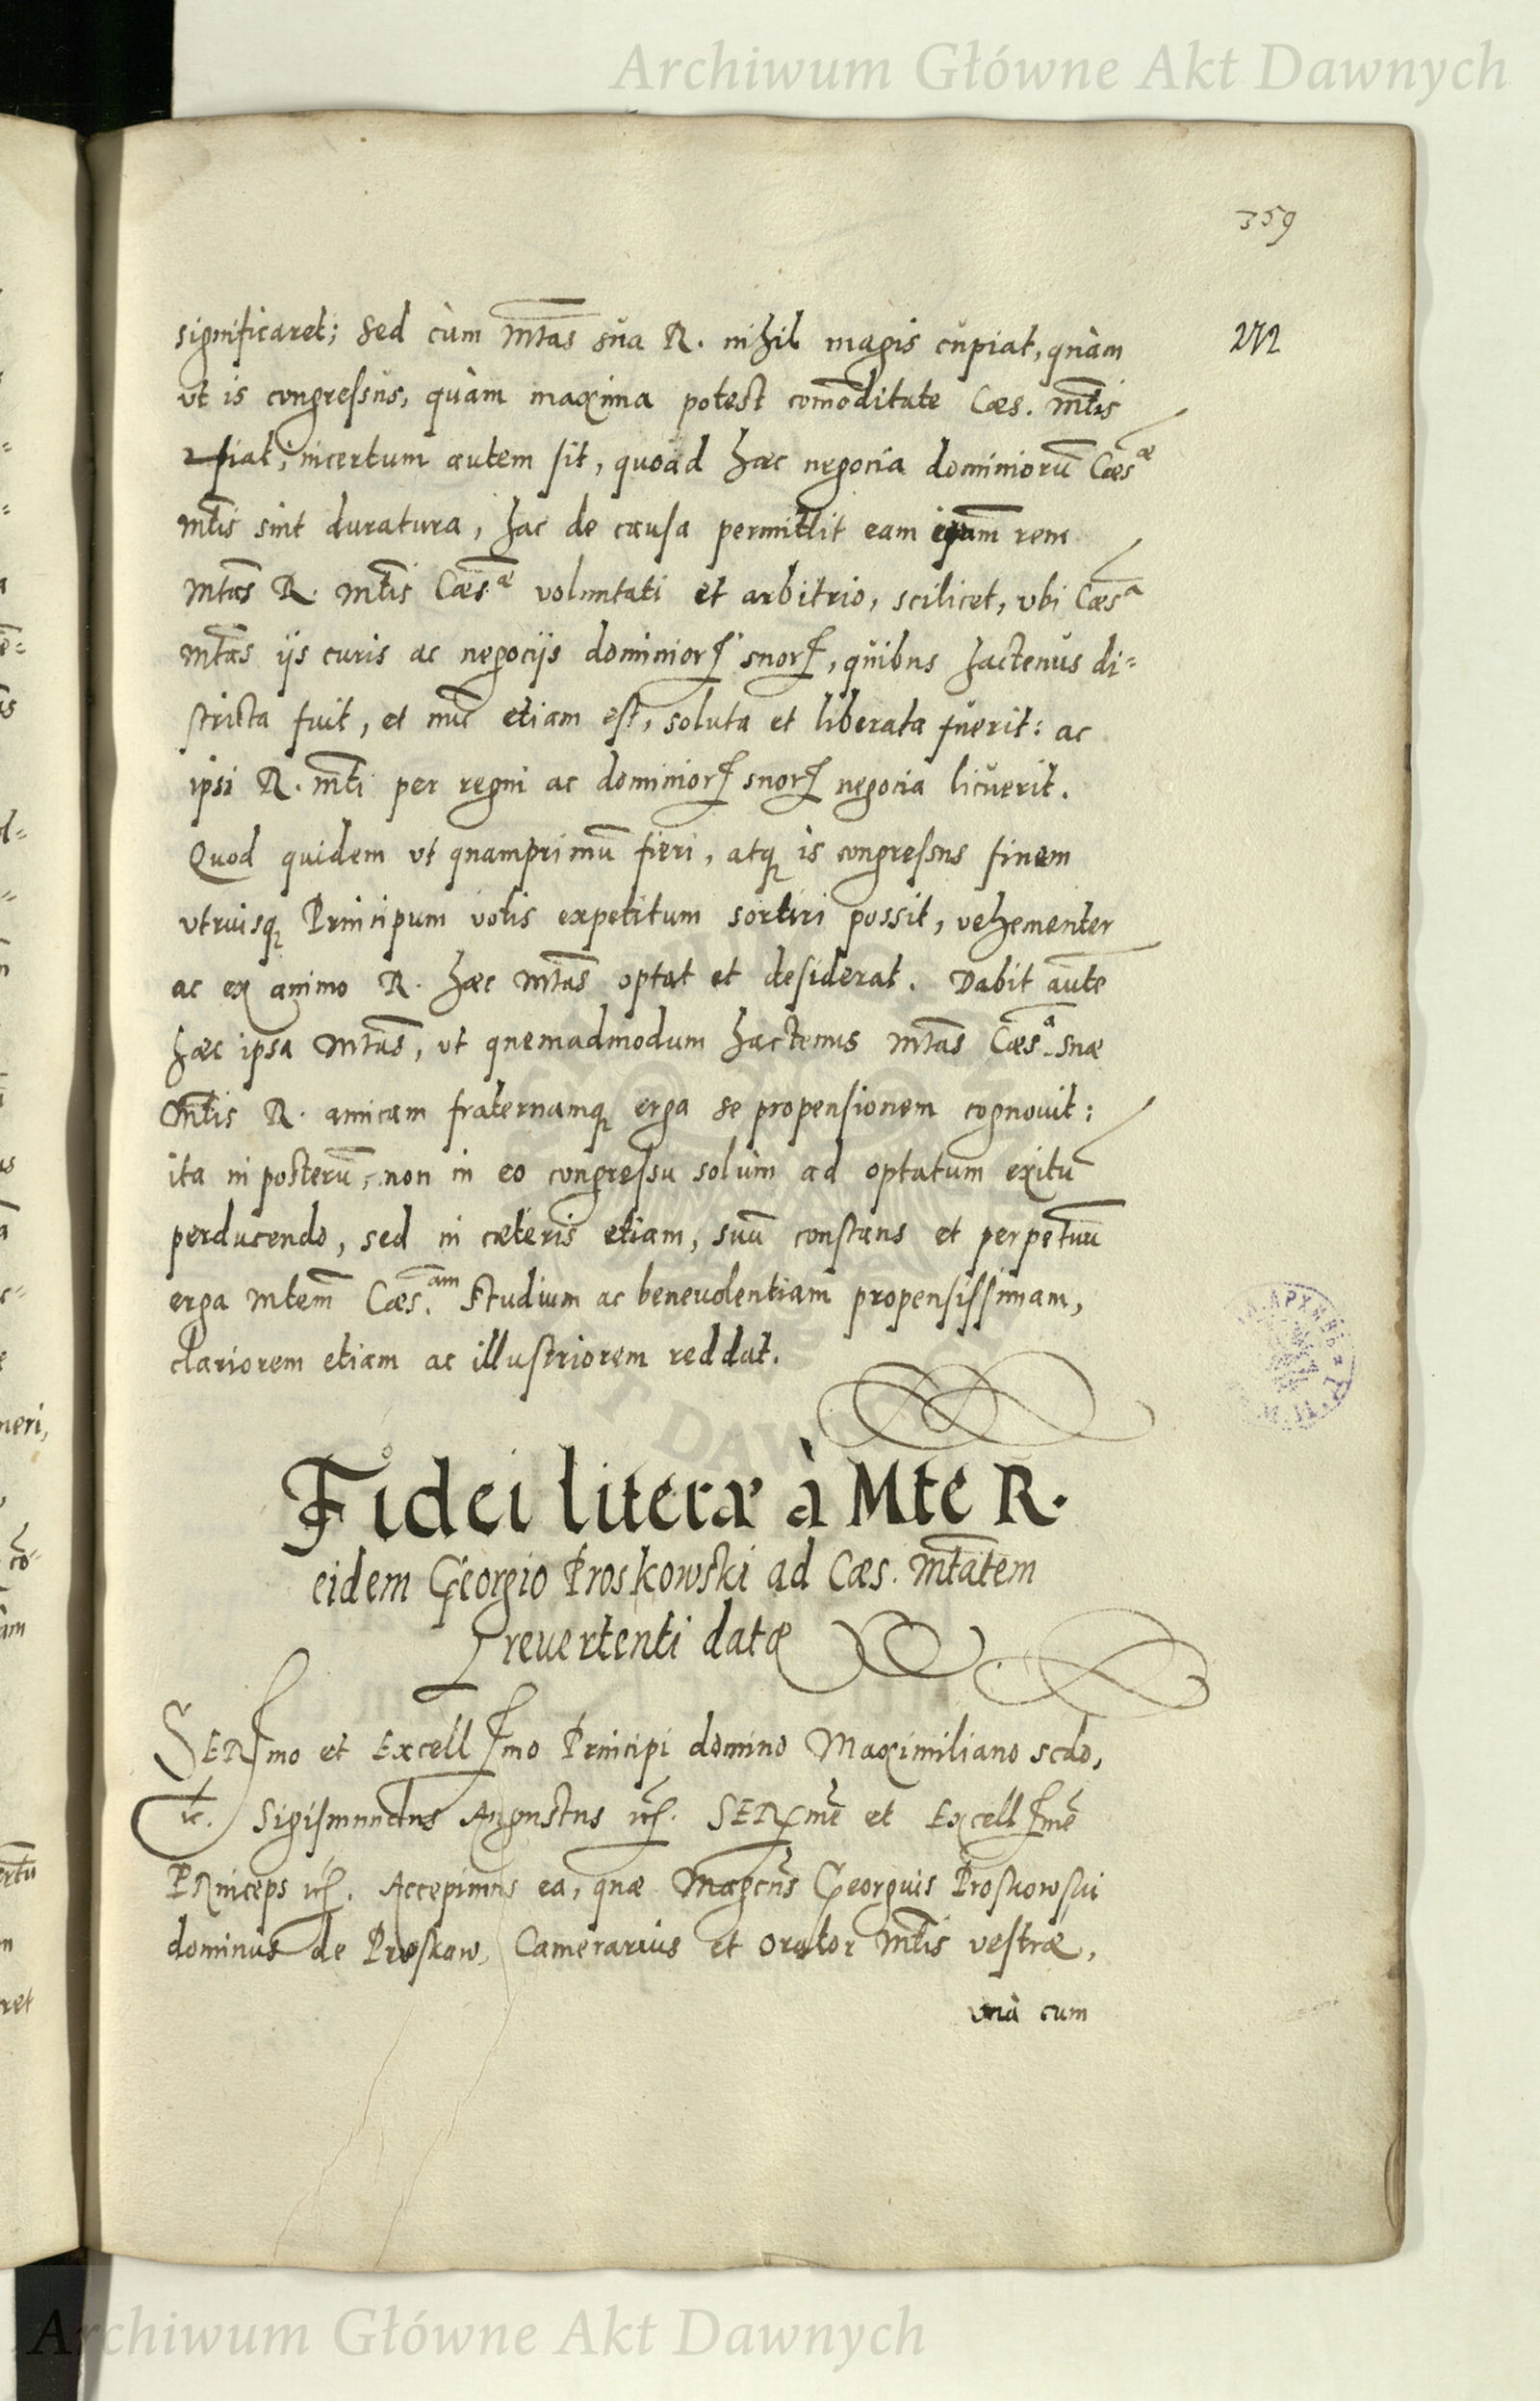 Archiwum Główne Akt Dawnych
359
significaret; Sed cùm Mtas sua R. nihil magis cupiat, quàm
ut is congressus, quàm maxima potest comoditate Cæs. Mtis
fiat; incertum autem sit, quoad hæc negocia dominiorū Cæsæ
Mtis sint duratura, hac de causa permittit eam rem
Mtas R. Mtis Cæs.æ voluntati et arbitrio, scilicet, ubi Cæsa
Mtas ijs curis ac negocijs dominiorꝝ suorꝝ, quibus hactenus di=
stricta fuit, et nūc etiam est, soluta et liberata fuerit: ac
ipsi R. Mti per regni ac dominiorꝝ suorꝝ negocia licuerit.
Quod quidem ut quamprimū fieri, atq; is congressus finem
utriusq; Principum votis expetitum sortiri possit, vehementer
ac ex animo R. hæc Mtas optat et desiderat. Dabit autē
hæc ipsa Mtas, ut quemadmodum hactenus Mtas Cæs.a suæ
Mtis R. amicam fraternamq; erga se propensionem cognovit:
ita in posterū, non in eo congressu solùm ad optatum exitū
perducendo, sed in cæteris etiam, suū constans et perpetuū
erga Mtem Cæs.am studium ac benevolentiam propensissimam,
clariorem etiam ac illustriorem reddat.
Fidei literæ à Mte R.
eidem Georgio Proskowski ad Cæs. Mtatem
revertenti datæ
SERmo et Excellmo Principi domino Maximiliano scdo,
etc. Sigismundus Augustus etc. SERme et Excellme
PRinceps etc. Accepimus ea, quæ Magcus Georgius Proskowski
dominus de Proskaw, Camerarius et Orator Mtis vestræ,
unà cum
Archiwum Główne Akt Dawnych